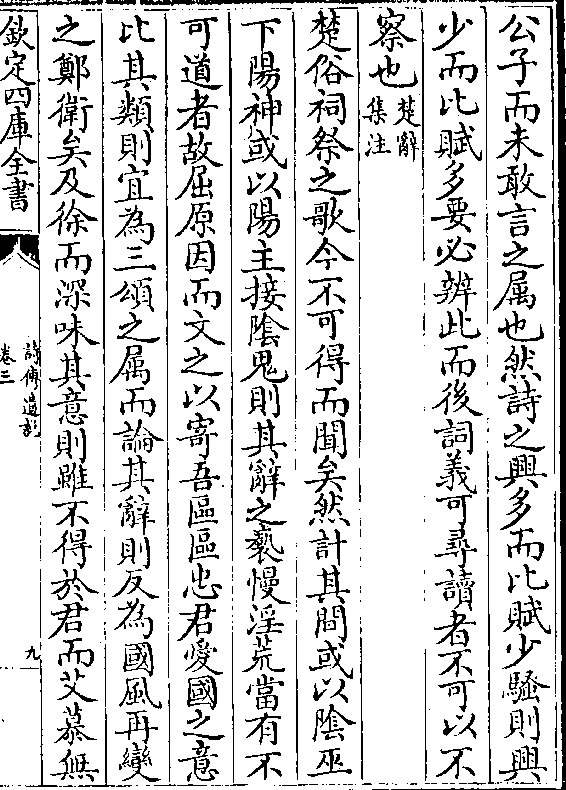 公子而未敢言之属也然詩之興多而比賦少騷則興
少而比賦多要必辨此而後詞義可尋讀者不可以不
察也楚辭集注
楚俗祠祭之歌今不可得而聞矣然計其間或以陰巫
下陽神或以陽主接陰鬼則其辭之褻慢淫荒當有不
可道者故屈原因而文之以寄吾區區忠君愛國之意
比其類則宜為三頌之属而論其辭則反為國風再變
之鄭衛矣及徐而深味其意則雖不得於君而愛慕無
欽定四庫全書
詩傳遺説
卷三
九